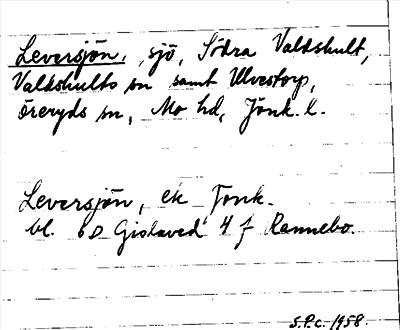 Leversjön, sjö, Södra Valdshult,
Valdshults sn samt Ulvestorp,
Öreryds sn, Mo hd, Jönk. l.
Leversjön, ek Jonk.
bl. 6D Gislaved 4 f Rannebo.
S.P.C. 1958.